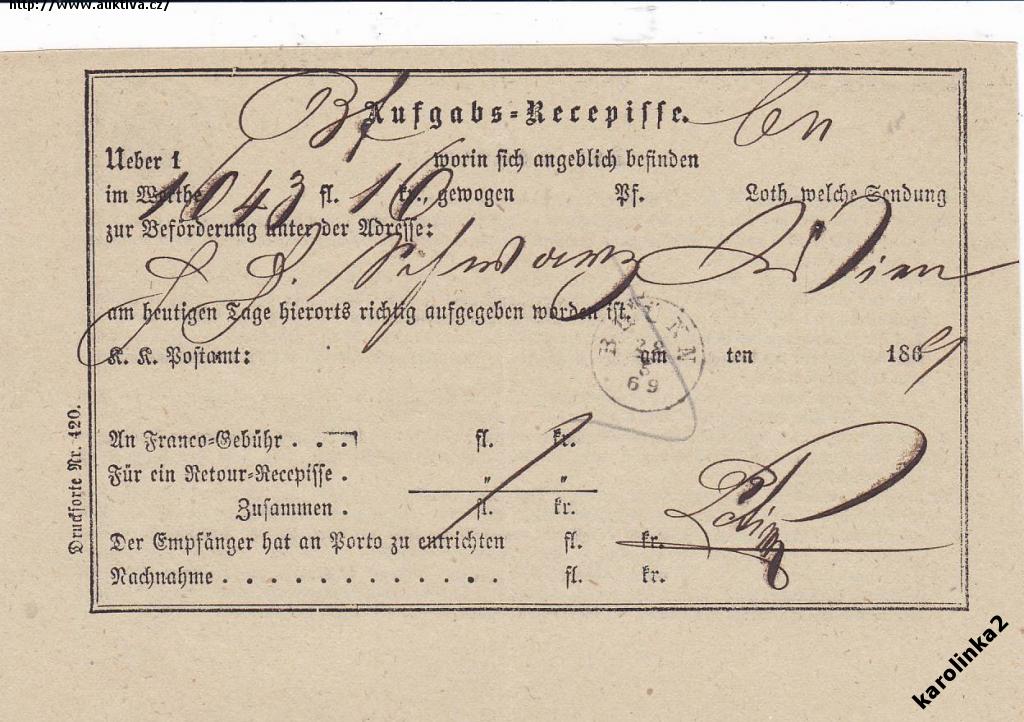 http://www.auktiva.cz/
Aufgabs-Recepisse.
Bf
Ueber 1 worin sich angeblich befinden
im Werthe 1043 fl. 16 kr., gewogen Pf. Loth, welche Sendung
zur Beförderung unter der Adresse:
Schwarz Wien
am heutigen Tage hierorts richtig aufgegeben worden ist.
K. K. Postamt: am ten 1869
69
An Franco-Gebühr . . . fl. kr.
Für ein Retour-Recepisse . " "
Zusammen . fl. kr.
Der Empfänger hat an Porto zu entrichten fl. kr.
Nachnahme . . . . . . . . . . . . fl. kr.
Drucksorte Nr. 420.
karolinka2